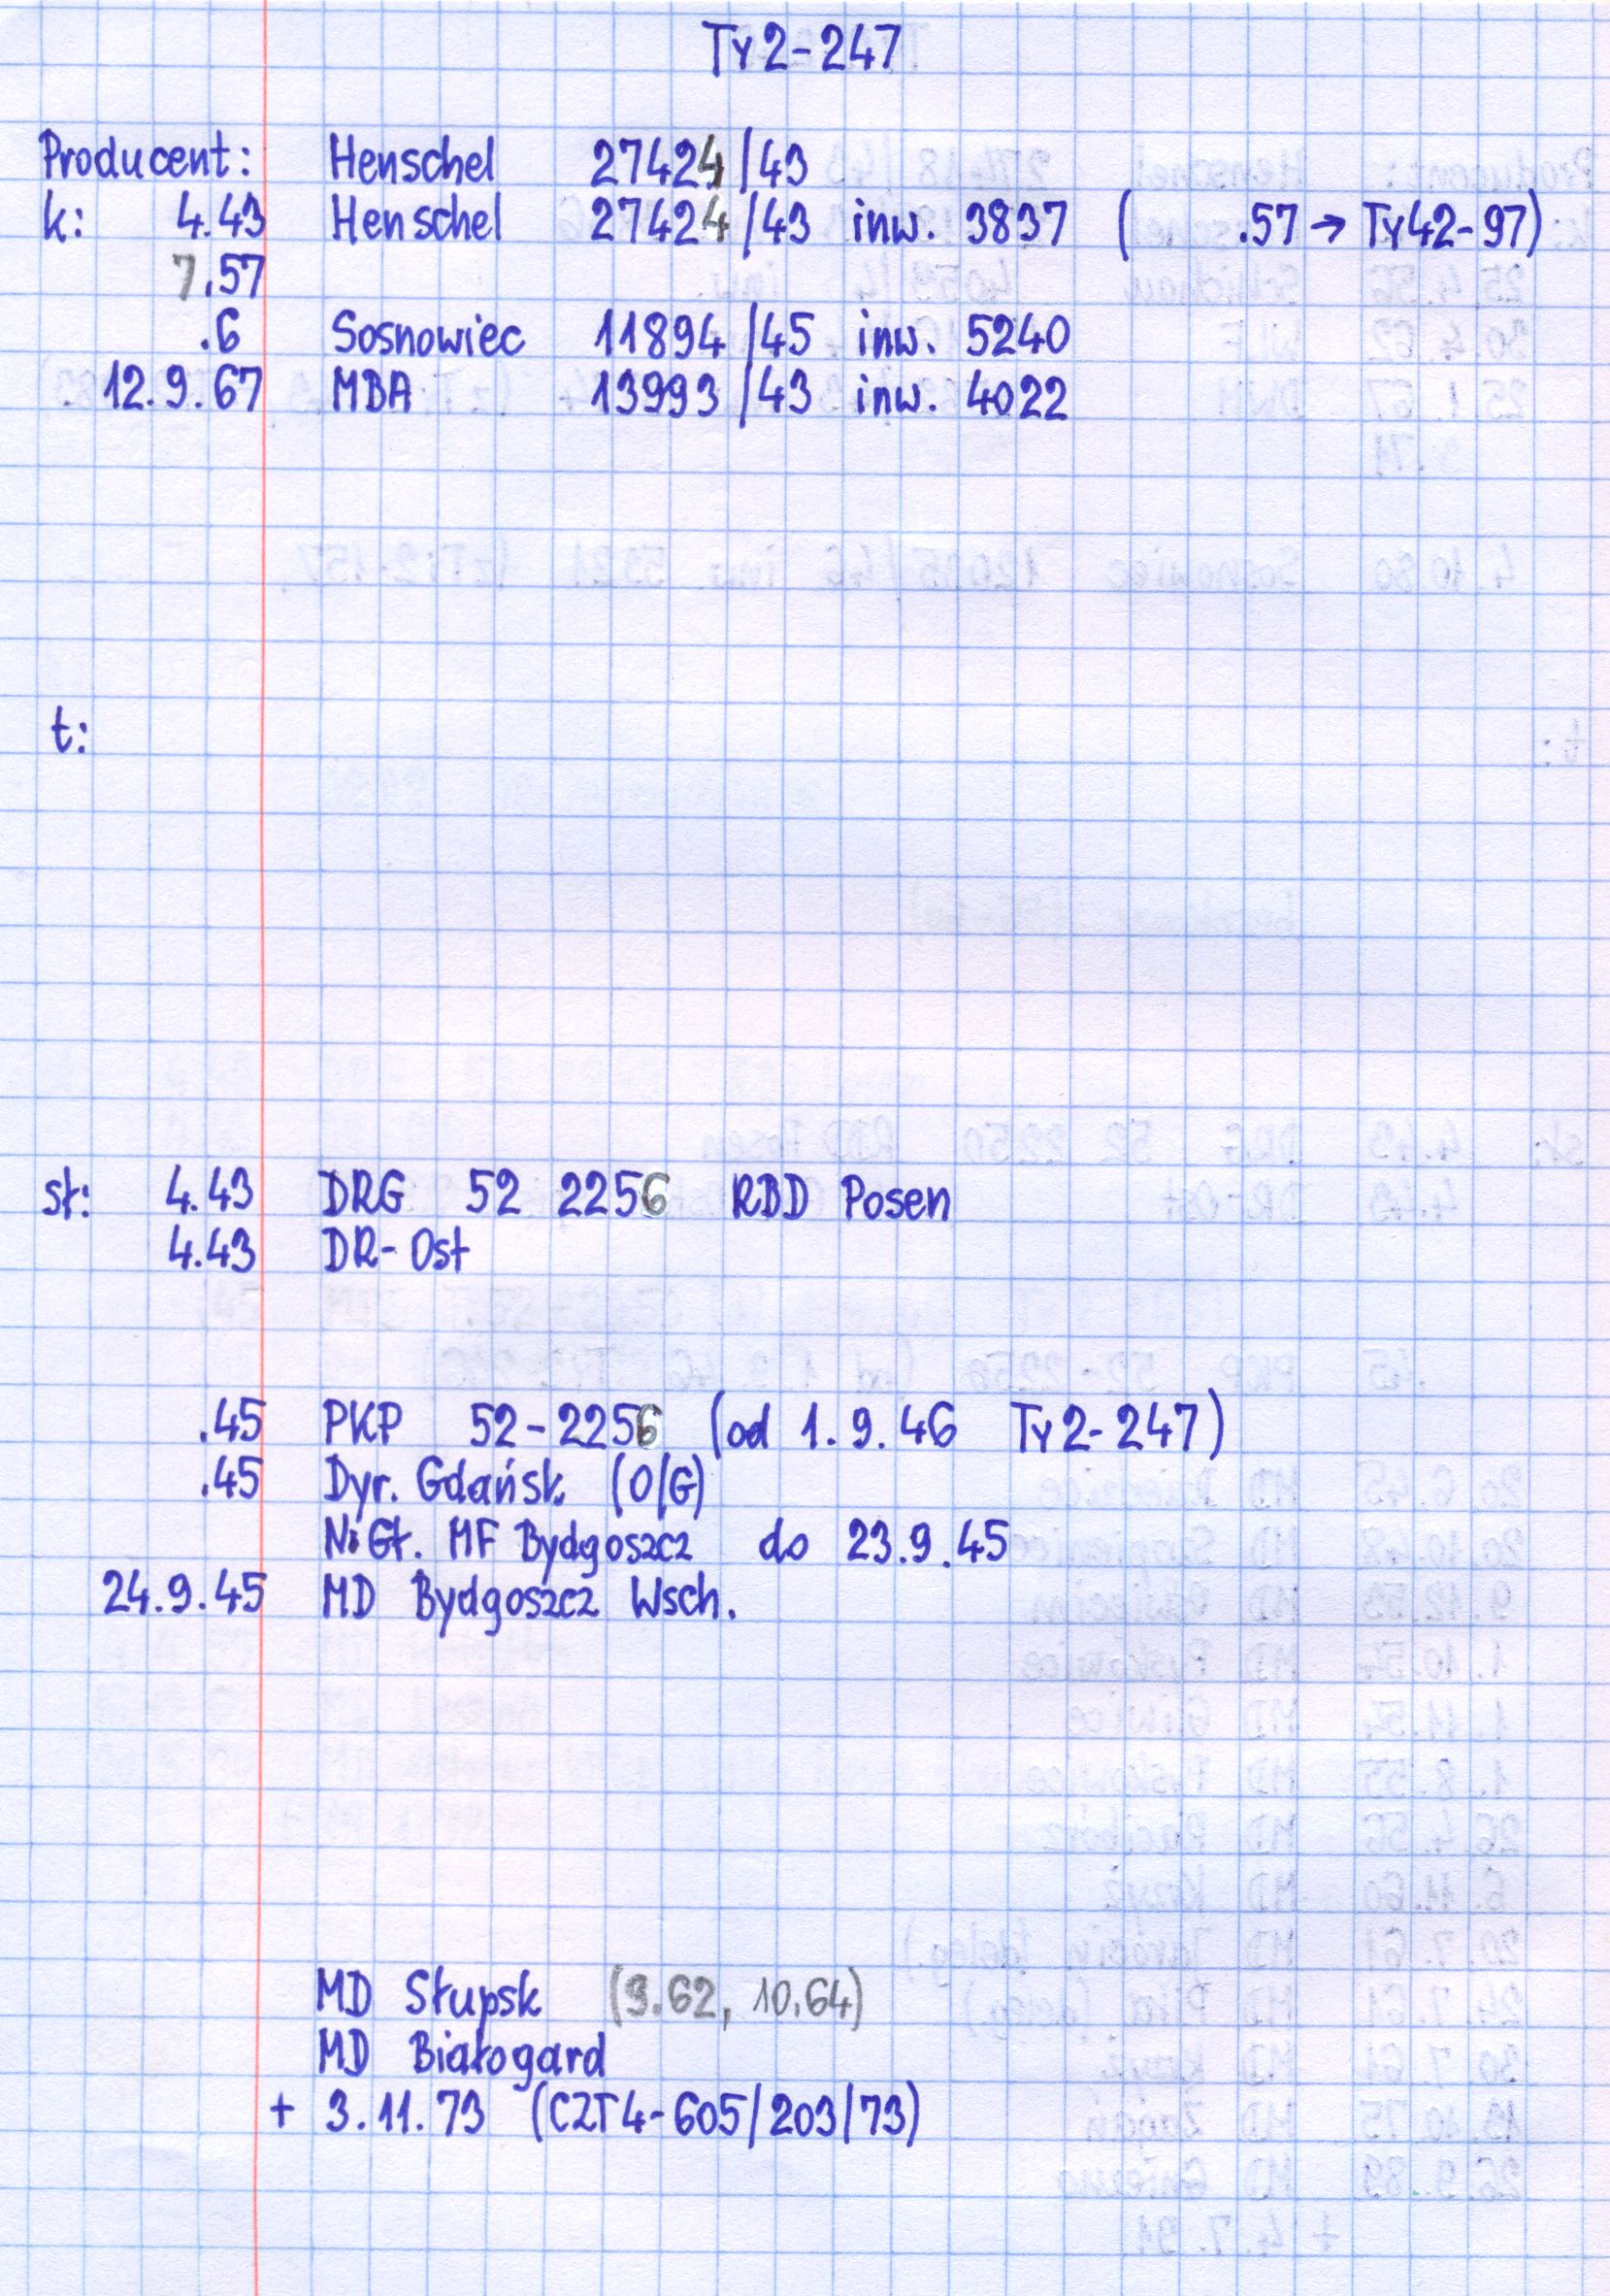 Ty2-247
Producent: Henschel 27424/43
k: 4.43 Henschel 27424/43 inw. 3837 ( .57 → Ty42-97)
7.57
.6 Sosnowiec 11894/45 inw. 5240
12.9.67 MBA 13993/43 inw. 4022
t:
st: 4.43 DRG 52 2256 RBD Posen
4.43 DR-Ost
.45 PKP 52-2256 (od 1.9.46 Ty2-247)
.45 Dyr. Gdańsk (O/G)
NiGł. MF Bydgoszcz do 23.9.45
24.9.45 MD Bydgoszcz Wsch.
MD Słupsk (9.62, 10.64)
MD Białogard
+ 3.11.73 (CZT4-605/203/73)